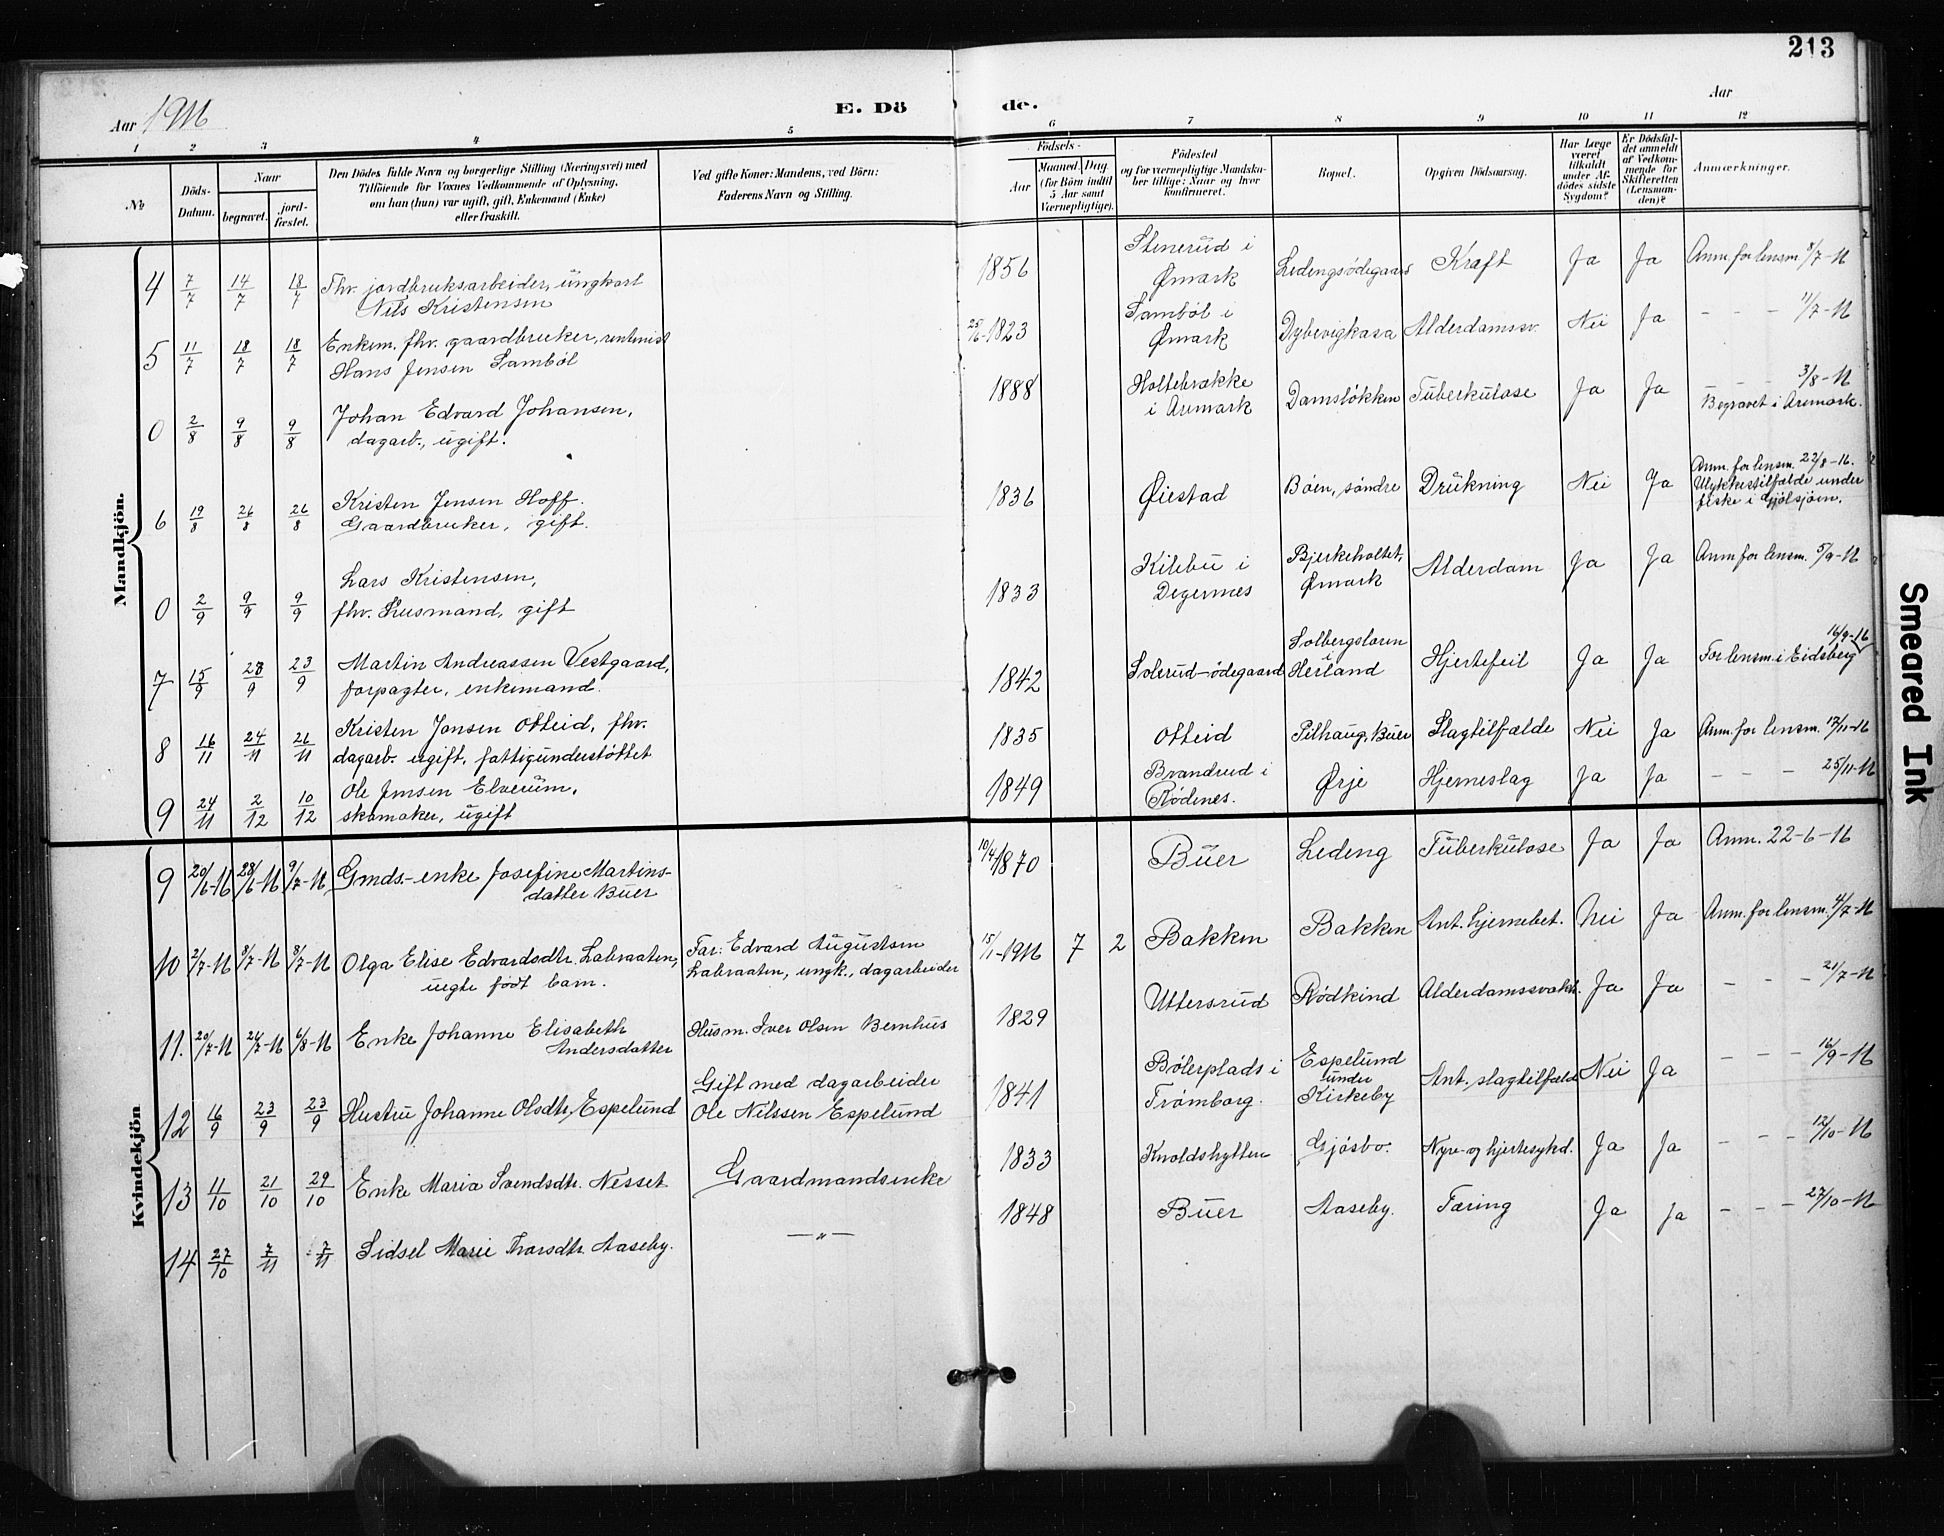 213
Aar 1916 E. Dö de. Aar
1 2 3 4 5 6 7 8 9 10 11 12
№
Döds-Datum.
Naar
begravet.
jord-fæstet.
Den Dödes fulde Navn og borgerlige Stilling (Næringsvei) med
Tilföiende for Voxnes Vedkommende af Oplysning,
om han (hun) var ugift, gift, Enkemand (Enke)
eller fraskilt.
Ved gifte Koner: Mandens, ved Börn:
Faderens Navn og Stilling.
Födsels-
Aar
Maaned. Dag.
(for Börn indtil
5 Aar samt
Værnepligtige).
Födested
og for værnepligtige Mandska-
ber tillige: Naar og hvor
konfirmeret.
Bopæl.
Opgiven Dödsaarsag.
Har Læge
været
tilkaldt
under Af-
dödes sidste
Sygdom?
Er Dödsfal-
det anmeldt
af Vedkom-
mende for
Skifteretten
(Lensman-
den)?
Anmærkninger.
Mandkjön.
4 7/7 14/7 18/7 Fhv. jordbruksarbeider, ungkarl
Nils Kristensen
1856 Stenerud i
Ømark Ledengsødegaard Kraft Ja Ja Anm. for lensm 8/7-16
5 11/7 18/7 18/7 Enkem. fhv. gaardbruker, rentenist
Hans Jensen Sambøl
25/6-1823 Sambøl i
Ømark Dybevigkasa Alderdomssv. Nei Ja - - - 11/7-16
0 2/8 9/8 9/8 Johan Edvard Johansen,
dagarb., ugift.
1888 Holtebrække
i Aremark Damsløkken Tuberkulose Ja Ja - - - 3/8-16
Begravet i Aremark.
6 19/8 26/8 26/8 Kristen Jensen Hoff.
Gaardbruker, gift.
1836 Øiestad Bøen, søndre Drukning Nei Ja Anm. for lensm. 22/8-16.
Ulykkestilfælde under
fiske i Gjølsjøen.
0 2/9 9/9 9/9 Lars Kristensen,
fhv. Husmand, gift
1833 Kilebu i
Degernes Bjerkeholtet,
Ømark Alderdom Ja Ja Anm for lensm. 5/9-16
7 15/9 23/9 23/9 Martin Andreassen Vestgaard,
forpagter, enkemand.
1842 Solerud-ødegaard Solbergsloren
i
Herland Hjertefeil Ja Ja 16/9-16
For lensm i Eidsberg
8 16/11 24/11 26/11 Kristen Jonsen Otteid, fhv.
dagarb. ugift, fattigunderstøttet
1835 Otteid Pilhaug, Buer Slagtilfælde Nei Ja Anm. for lensm. 17/11-16
9 24/11 2/12 10/12 Ole Jensen Elverum,
skomaker, ugift
1849 Brandrud i
Rødenes. Ørje Hjerneslag Ja Ja - - - 25/11-16
Kvindekjön
9 20/6-16 28/6-16 9/7-16 Gmds.-enke Josefine Martins-
datter Buer
10/4 1870 Buer Ledeng Tuberkulose Ja Ja Anm. 22-6-16
10 2/7-16 8/7-16 8/7-16 Olga Elise Edvardsdtr. Labraaten,
uegte født barn.
Far: Edvard Augustsen
Labraaten, ungk., dagarbeider
15/1-1916 7 2 Bakken Bakken Ant. hjernebet. Nei Ja Anm. for lensm. 4/7-16
11. 20/7-16 24/7-16 6/8-16 Enke Johanne Elisabeth
Andersdatter
Husm. Iver Olsen Bernhus
1829 Uttersrud Rødkind Alderdomssvakh. Ja Ja - - - 21/7-16
12 16/9 23/9 23/9 Hustru Johanne Olsdtr. Espelund
Gift med dagarbeider
Ole Nilssen Espelund
1841 Bølerplads i
Trømborg. Espelund
under
Kirkeby Ant. slagtilfæld Nei Ja - - - 16/9-16
13 11/10 21/10 29/10 Enke Maria Svendsdtr. Nesset
Gaardmandsenke
1833 Knoldshytten Gjøsbo. Nyre- og hjertesykd. Ja Ja - - - 12/10-16
14 27/10 7/11 7/11 Sidsel Marie Thorsdtr. Aaseby.
—„—
1848 Buer Aaseby. Tæring Ja Ja - - - 27/10-16
Smeared Ink